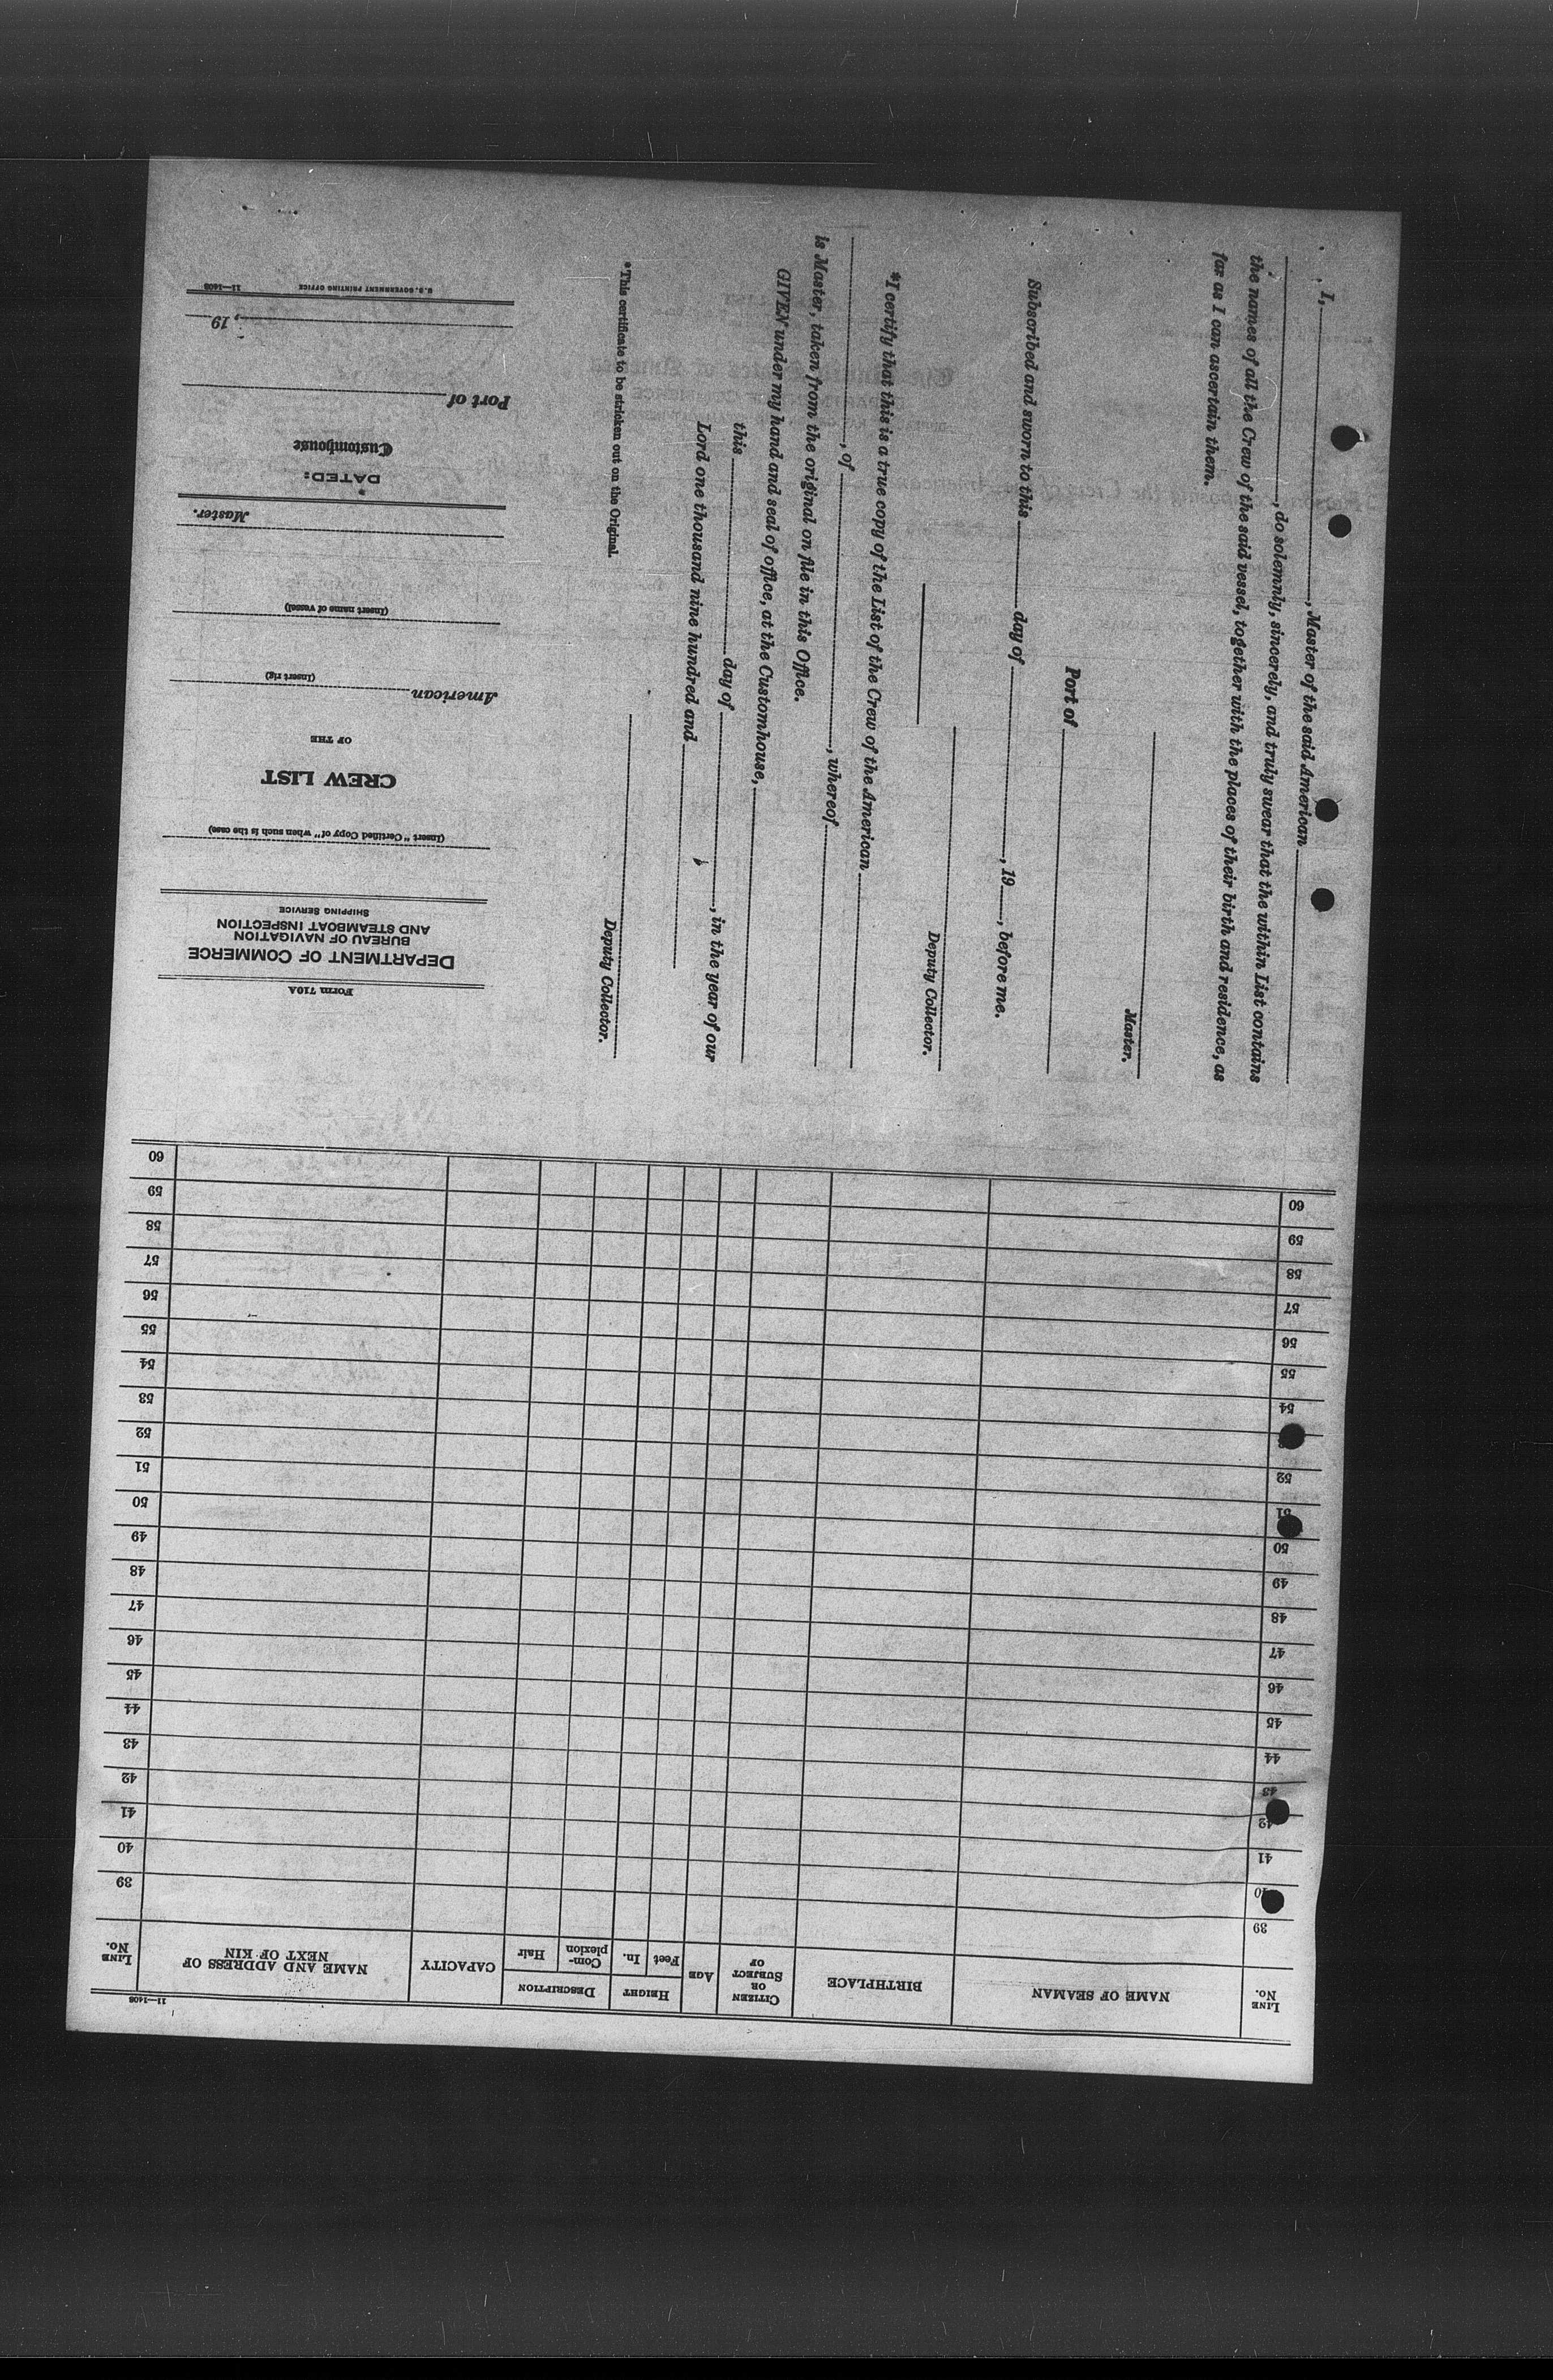 11—1408
LINE No. NAME OF SEAMAN BIRTHPLACE CITIZEN OR SUBJECT OF AGE HEIGHT DESCRIPTION CAPACITY NAME AND ADDRESS OF NEXT OF KIN LINE No.
Feet In. Com-plexion Hair
39 39
40 40
41 41
42 42
43 43
44 44
45 45
46 46
47 47
48 48
49 49
50 50
51 51
52 52
53
54 54
55 55
56 56
57 57
58 58
59 59
60 60
Form 710A
DEPARTMENT OF COMMERCE
BUREAU OF NAVIGATION
AND STEAMBOAT INSPECTION
SHIPPING SERVICE
(Insert "Certified Copy of" when such is the case)
CREW LIST
OF THE
American
(Insert rig)
(Insert name of vessel)
Master.
DATED:
Customhouse
Port of
, 19
11—1408 U.S. GOVERNMENT PRINTING OFFICE
I, , Master of the said American
, do solemnly, sincerely, and truly swear that the within List contains
the names of all the Crew of the said vessel, together with the places of their birth and residence, as
far as I can ascertain them.
Master.
Port of
Subscribed and sworn to this day of , 19 , before me.
Deputy Collector.
*I certify that this is a true copy of the List of the Crew of the American
, of , whereof
is Master, taken from the original on file in this Office.
GIVEN under my hand and seal of office, at the Customhouse,
this day of , in the year of our
Lord one thousand nine hundred and
Deputy Collector.
*This certificate to be stricken out on the Original.